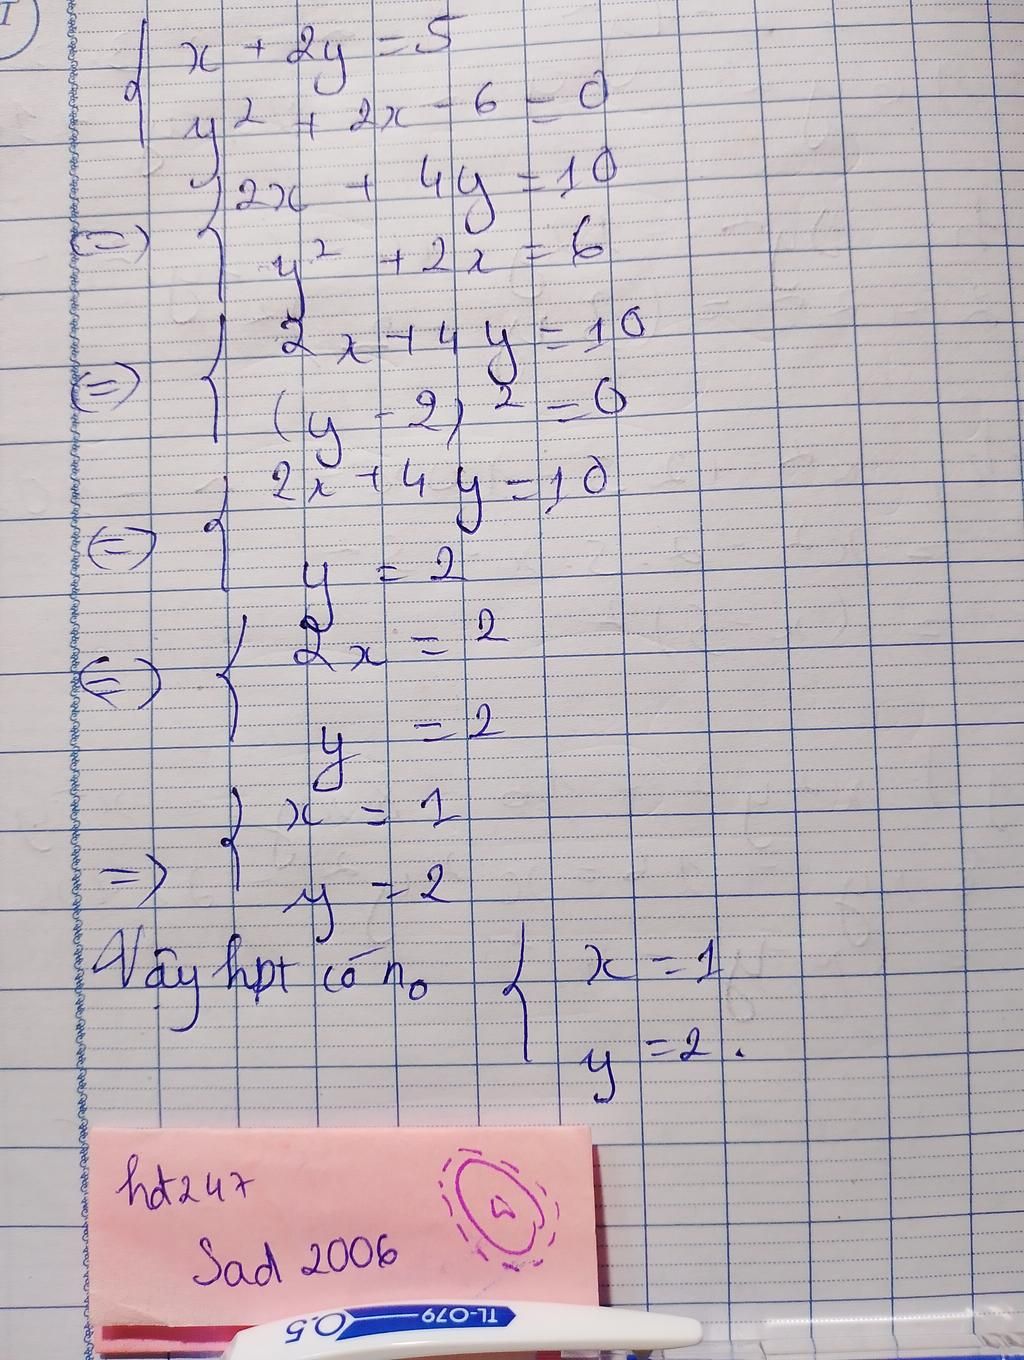 x + 2y = 5
y² + 2x - 6 = 0
(=) 2x + 4y = 10
y² + 2x = 6
(=) 2x + 4y = 10
(y - 2)² = 0
(=) 2x + 4y = 10
y = 2
(=) 2x = 2
y = 2
=) x = 1
y = 2
Vậy hpt có n₀ x = 1
y = 2.
hdt247
Sad 2006
TL-079
0.5